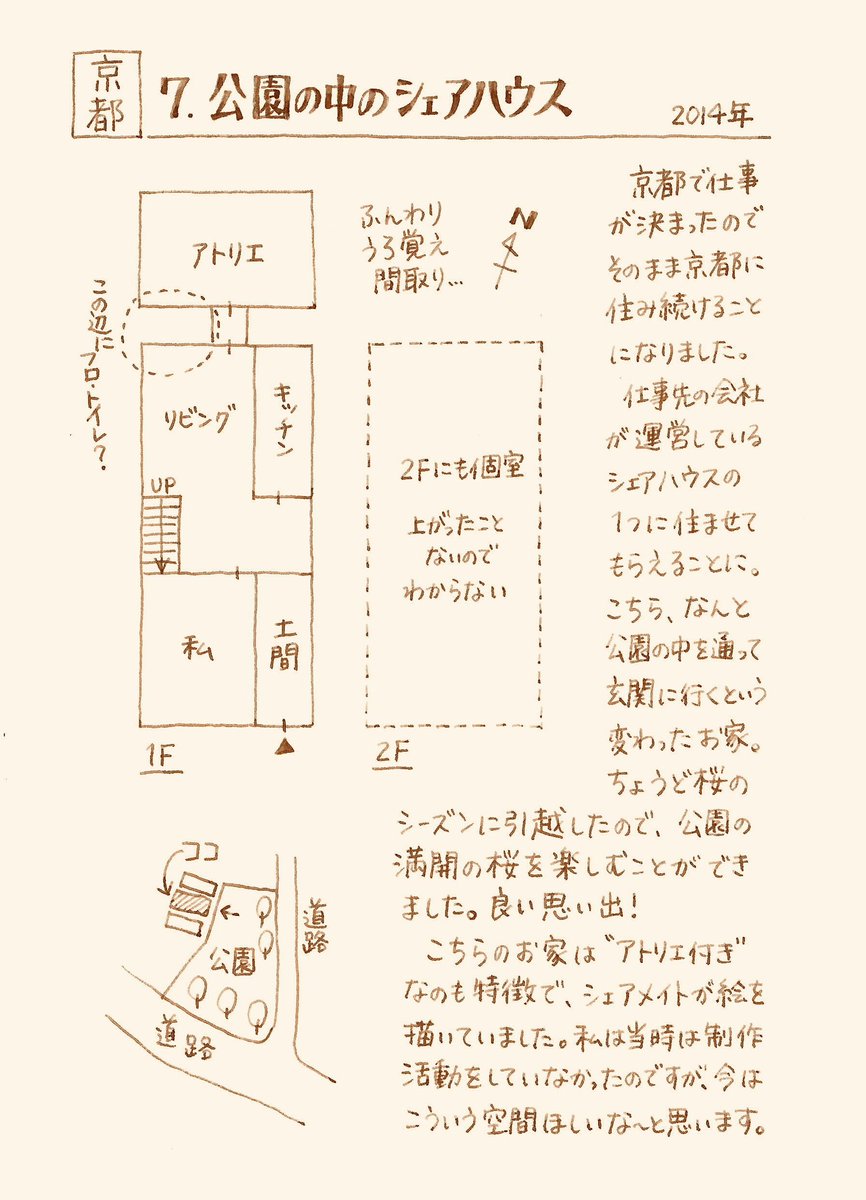 京都
7. 公園の中のシェアハウス
2014年
アトリエ
ふんわり
うろ覚え
間取り…
N
この辺に
フロ・トイレ?
リビング
キッチン
UP
私
土間
1F
2Fにも個室
上がったこと
ないので
わからない
2F
京都で仕事
が決まったので
そのまま京都に
住み続けること
になりました。
仕事先の会社
が運営している
シェアハウスの
1つに住ませて
もらえることに。
こちら、なんと
公園の中を通って
玄関に行くという
変わったお家。
ちょうど桜の
シーズンに引越したので、公園の
満開の桜を楽しむことができ
ました。良い思い出!
こちらのお家は"アトリエ付き"
なのも特徴で、シェアメイトが絵を
描いていました。私は当時は制作
活動をしていなかったのですが、今は
こういう空間ほしいな〜と思います。
ココ
公園
道路
道路